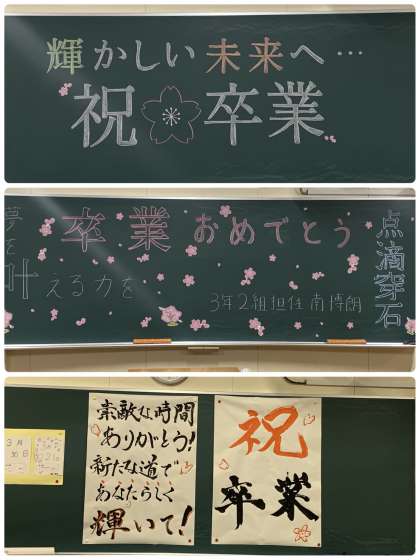 輝かしい未来へ…
祝卒業
卒業おめでとう
夢を
叶える力を
3年2組担任 南博朗
点滴穿石
素敵な時間
ありがとう!
新たな道で
あなたらしく
輝いて!
祝
卒業
3月